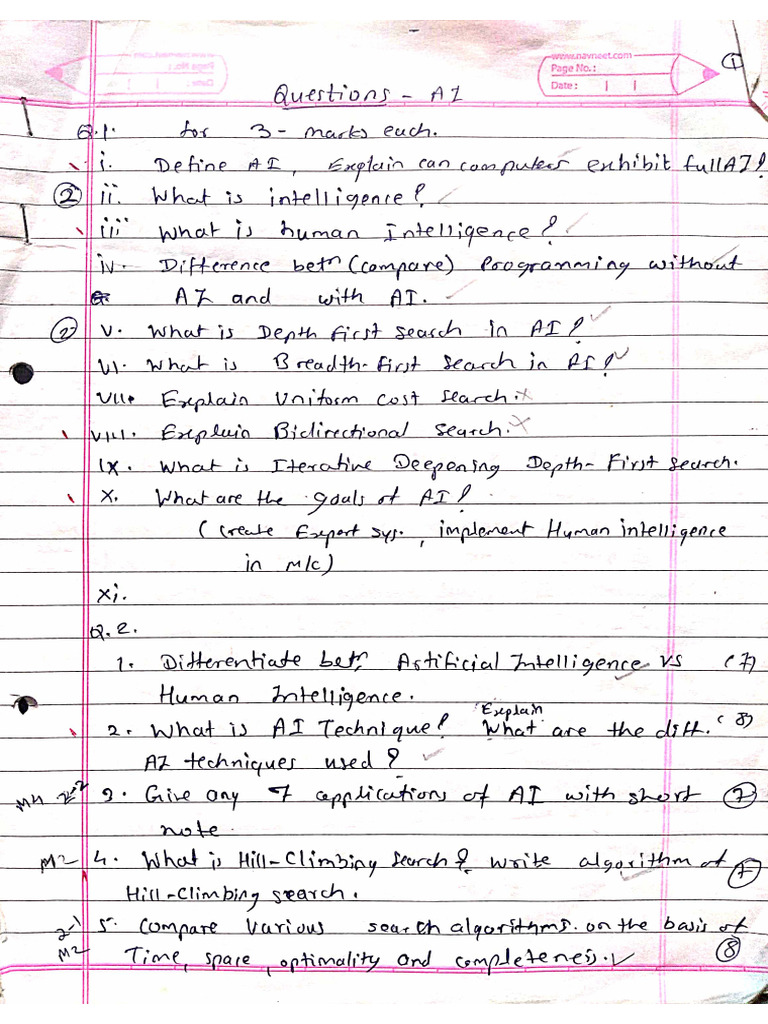 ①
www.navneet.com
Page No.:
Date:
Questions - AI
Q.1. for 3-marks each.
i. Define AI, Explain can computers exhibit full AI?
② ii. What is intelligence?
iii What is human Intelligence?
iv. Difference betn (compare) Programming without
AI and with AI.
② v. What is Depth first search in AI?
vi. What is Breadth-first search in AI?
vii. Explain Uniform cost search.
viii. Explain Bidirectional search.
ix. What is Iterative Deepening Depth-First search.
x. What are the goals of AI?
(Create Expert sys., implement Human intelligence
in m/c)
xi.
Q.2.
1. Differentiate betn Artificial Intelligence vs (7)
Human Intelligence.
Explain
2. What is AI Technique? What are the diff. (8)
AI techniques used?
M4 3. Give any 7 applications of AI with short ⑦
note.
M2 4. What is Hill-Climbing Search & write algorithm of ⑦
Hill-Climbing search.
2-1 5. Compare various search algorithms. on the basis of
M2 Time, space, optimality and completeness. ⑧